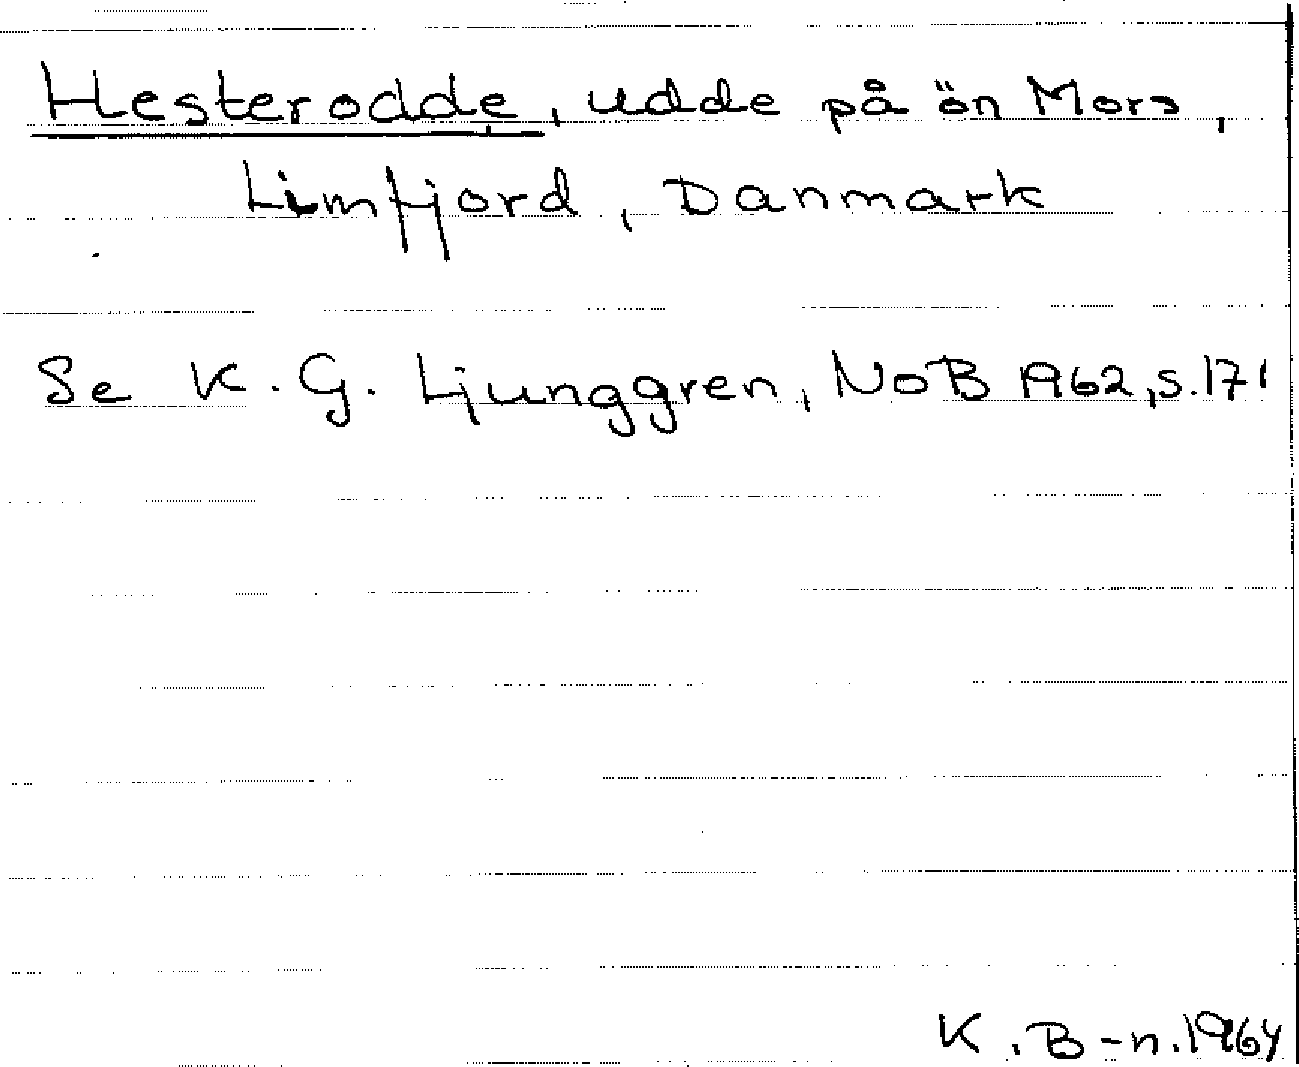 Hesterodde, udde på ön Mors,
Limfjord, Danmark
Se K. G. Ljunggren, NoB 1962, s. 171
K. B-n. 1964